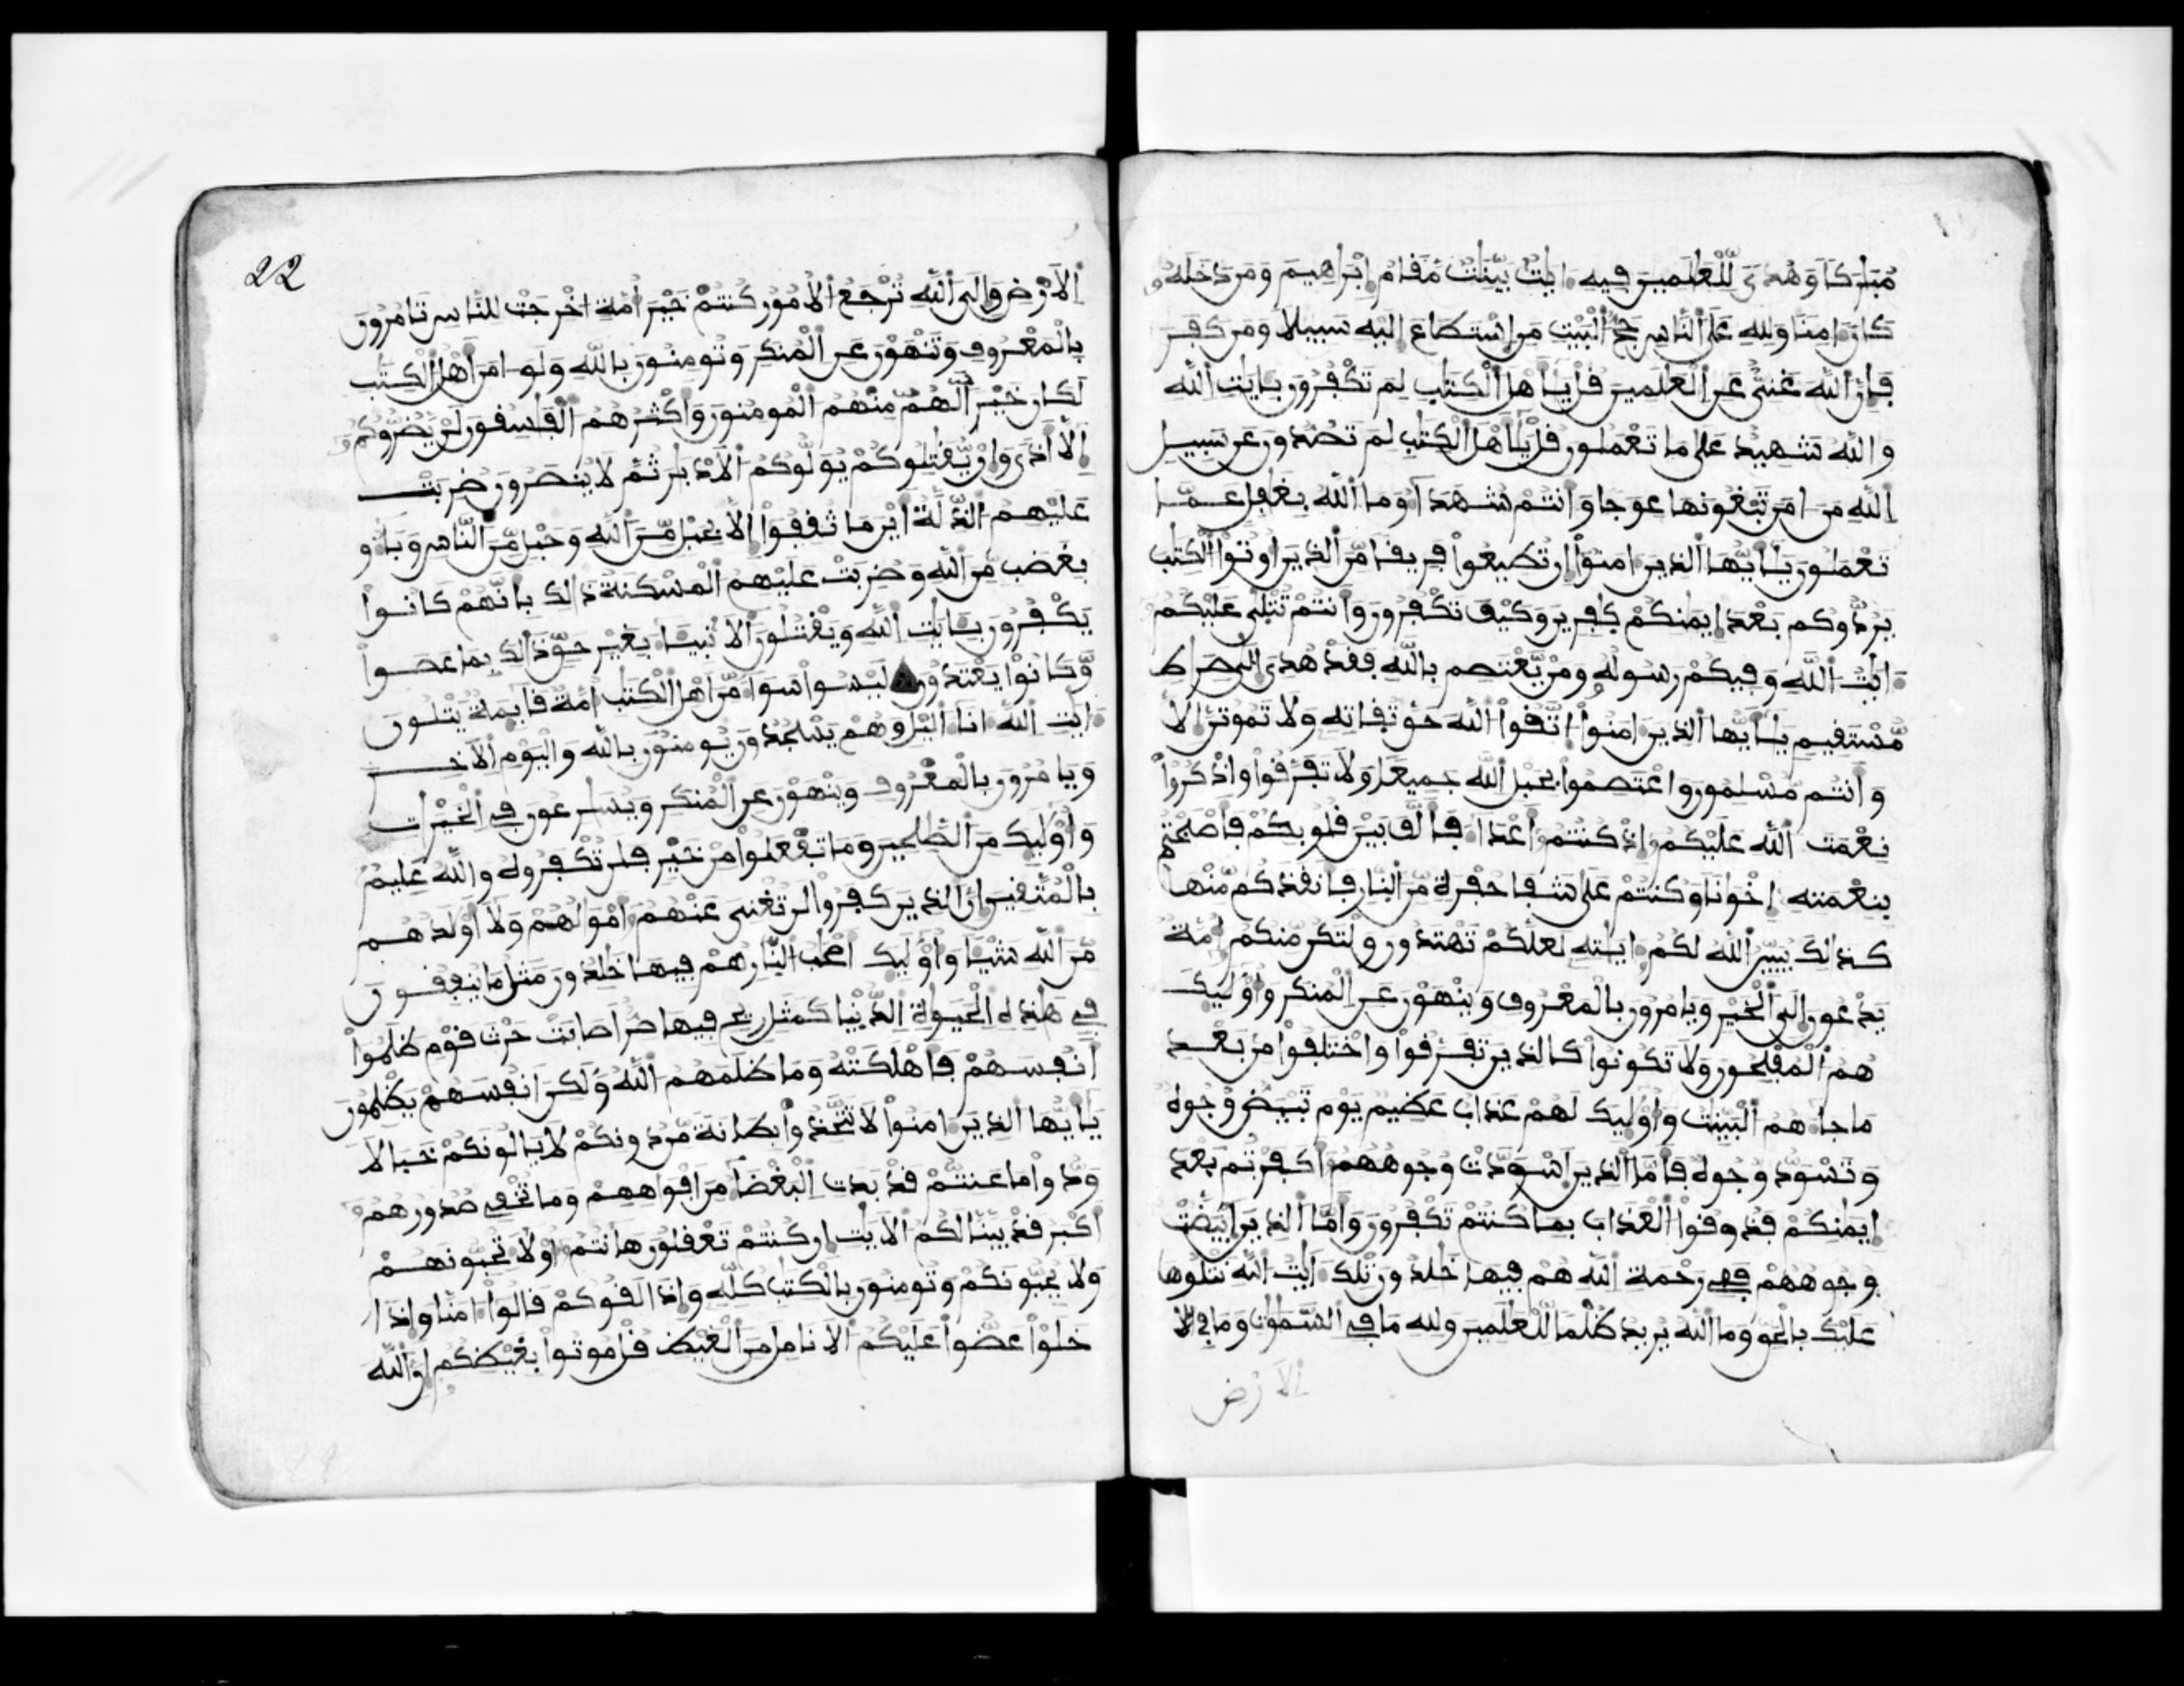 مُّبَٰرَكًا وَهُدًى لِّلْعَٰلَمِينَ فِيهِ ءَايَٰتٌ بَيِّنَٰتٌ مَّقَامُ إِبْرَٰهِيمَ وَمَن دَخَلَهُۥ
كَانَ ءَامِنًا وَلِلهِ عَلَى ٱلنَّاسِ حَجُّ ٱلْبَيْتِ مَنِ ٱسْتَطَاعَ إِلَيْهِ سَبِيلًا وَمَن كَفَرَ
فَإِنَّ ٱللَّهَ غَنِيٌّ عَنِ ٱلْعَٰلَمِينَ قُلْ يَٰٓأَهْلَ ٱلْكِتَٰبِ لِمَ تَكْفُرُونَ بِـَٔايَٰتِ ٱللَّهِ
وَٱللَّهُ شَهِيدٌ عَلَىٰ مَا تَعْمَلُونَ قُلْ يَٰٓأَهْلَ ٱلْكِتَٰبِ لِمَ تَصُدُّونَ عَن سَبِيلِ
ٱللَّهِ مَنْ ءَامَنَ تَبْغُونَهَا عِوَجًا وَأَنتُمْ شُهَدَآءُ وَمَا ٱللَّهُ بِغَٰفِلٍ عَمَّا
تَعْمَلُونَ يَٰٓأَيُّهَا ٱلَّذِينَ ءَامَنُوٓا۟ إِن تُطِيعُوا۟ فَرِيقًا مِّنَ ٱلَّذِينَ أُوتُوا۟ ٱلْكِتَٰبَ
يَرُدُّوكُم بَعْدَ إِيمَٰنِكُمْ كَٰفِرِينَ وَكَيْفَ تَكْفُرُونَ وَأَنتُمْ تُتْلَىٰ عَلَيْكُمْ
ءَايَٰتُ ٱللَّهِ وَفِيكُمْ رَسُولُهُۥ وَمَن يَعْتَصِم بِٱللَّهِ فَقَدْ هُدِيَ إِلَىٰ صِرَٰطٍ
مُّسْتَقِيمٍ يَٰٓأَيُّهَا ٱلَّذِينَ ءَامَنُوا۟ ٱتَّقُوا۟ ٱللَّهَ حَقَّ تُقَاتِهِ وَلَا تَمُوتُنَّ إِلَّا
وَأَنتُم مُّسْلِمُونَ وَٱعْتَصِمُوا۟ بِحَبْلِ ٱللَّهِ جَمِيعًا وَلَا تَفَرَّقُوا۟ وَٱذْكُرُوا۟
نِعْمَتَ ٱللَّهِ عَلَيْكُمُۥٓ إِذْ كُنتُمُۥٓ أَعْدَآءً فَأَلَّفَ بَيْنَ قُلُوبِكُمْ فَأَصْبَحْتُم
بِنِعْمَتِهِ إِخْوَٰنًا وَكُنتُمْ عَلَىٰ شَفَا حُفْرَةٍ مِّنَ ٱلنَّارِ فَأَنقَذَكُم مِّنْهَا
كَذَٰلِكَ يُبَيِّنُ ٱللَّهُ لَكُمُۥٓ ءَايَٰتِهِ لَعَلَّكُمْ تَهْتَدُونَ وَلْتَكُن مِّنكُمُۥٓ أُمَّةٌ
يَدْعُونَ إِلَى ٱلْخَيْرِ وَيَامُرُونَ بِٱلْمَعْرُوفِ وَيَنْهَوْنَ عَنِ ٱلْمُنكَرِ وَأُو۟لَٰٓئِكَ
هُمُ ٱلْمُفْلِحُونَ وَلَا تَكُونُوا۟ كَٱلَّذِينَ تَفَرَّقُوا۟ وَٱخْتَلَفُوا۟ مِنۢ بَعْدِ
مَا جَآءَهُمُ ٱلْبَيِّنَٰتُ وَأُو۟لَٰٓئِكَ لَهُمْ عَذَابٌ عَظِيمٌ يَوْمَ تَبْيَضُّ وُجُوهٌ
وَتَسْوَدُّ وُجُوهٌ فَأَمَّا ٱلَّذِينَ ٱسْوَدَّتْ وُجُوهُهُمُۥٓ أَكَفَرْتُم بَعْدَ
إِيمَٰنِكُمْ فَذُوقُوا۟ ٱلْعَذَابَ بِمَا كُنتُمْ تَكْفُرُونَ وَأَمَّا ٱلَّذِينَ ٱبْيَضَّتْ
وُجُوهُهُمْ فَفِي رَحْمَةِ ٱللَّهِ هُمْ فِيهَا خَٰلِدُونَ تِلْكَ ءَايَٰتُ ٱللَّهِ نَتْلُوهَا
عَلَيْكَ بِٱلْحَقِّ وَمَا ٱللَّهُ يُرِيدُ ظُلْمًا لِّلْعَٰلَمِينَ وَلِلهِ مَا فِي ٱلسَّمَٰوَٰتِ وَمَا فِي ٱلَا
ٱلَارْضِ
22
ٱلَارْضِ وَإِلَى ٱللَّهِ تُرْجَعُ ٱلُامُورُ كُنتُمْ خَيْرَ أُمَّةٍ اُخْرِجَتْ لِلنَّاسِ تَامُرُونَ
بِٱلْمَعْرُوفِ وَتَنْهَوْنَ عَنِ ٱلْمُنكَرِ وَتُومِنُونَ بِٱللَّهِ وَلَوَ ءَامَنَ أَهْلُ ٱلْكِتَٰبِ
لَكَانَ خَيْرًا لَّهُم مِّنْهُمُ ٱلْمُومِنُونَ وَأَكْثَرُهُمُ ٱلْفَٰسِقُونَ لَنْ يَّضُرُّوكُمُۥٓ
إِلَّا أَذًى وَإِنْ يُّقَٰتِلُوكُمْ يُوَلُّوكُمُ ٱلَادْبَٰرَ ثُمَّ لَا يُنصَرُونَ ضُرِبَتْ
عَلَيْهِمُ ٱلذِّلَّةُ أَيْنَ مَا ثُقِفُوا۟ إِلَّا بِحَبْلٍ مِّنَ ٱللَّهِ وَحَبْلٍ مِّنَ ٱلنَّاسِ وَبَآءُو
بِغَضَبٍ مِّنَ ٱللَّهِ وَضُرِبَتْ عَلَيْهِمُ ٱلْمَسْكَنَةُ ذَٰلِكَ بِأَنَّهُمْ كَانُوا۟
يَكْفُرُونَ بِـَٔايَٰتِ ٱللَّهِ وَيَقْتُلُونَ ٱلَانۢبِيَآءَ بِغَيْرِ حَقٍّ ذَٰلِكَ بِمَا عَصَوا۟
وَّكَانُوا۟ يَعْتَدُونَ لَيْسُوا۟ سَوَآءً مِّنَ أَهْلِ ٱلْكِتَٰبِ أُمَّةٌ قَآئِمَةٌ يَتْلُونَ
ءَايَٰتِ ٱللَّهِ ءَانَآءَ ٱلَّيْلِ وَهُمْ يَسْجُدُونَ يُومِنُونَ بِٱللَّهِ وَٱلْيَوْمِ ٱلَاخِرِ
وَيَامُرُونَ بِٱلْمَعْرُوفِ وَيَنْهَوْنَ عَنِ ٱلْمُنكَرِ وَيُسَٰرِعُونَ فِي ٱلْخَيْرَٰتِ
وَأُو۟لَٰٓئِكَ مِنَ ٱلصَّٰلِحِينَ وَمَا تَفْعَلُوا۟ مِنْ خَيْرٍ فَلَن تُكْفَرُوهُ وَٱللَّهُ عَلِيمٌۢ
بِٱلْمُتَّقِينَ إِنَّ ٱلَّذِينَ كَفَرُوا۟ لَن تُغْنِيَ عَنْهُمُۥٓ أَمْوَٰلُهُمْ وَلَا أَوْلَٰدُهُم
مِّنَ ٱللَّهِ شَيْـًٔا وَأُو۟لَٰٓئِكَ أَصْحَٰبُ ٱلنَّارِ هُمْ فِيهَا خَٰلِدُونَ مَثَلُ مَا يُنفِقُونَ
فِي هَٰذِهِ ٱلْحَيَوٰةِ ٱلدُّنْيَا كَمَثَلِ رِيحٍ فِيهَا صِرٌّ اَصَابَتْ حَرْثَ قَوْمٍ ظَلَمُوا۟
أَنفُسَهُمْ فَأَهْلَكَتْهُ وَمَا ظَلَمَهُمُ ٱللَّهُ وَلَٰكِنَ اَنفُسَهُمْ يَظْلِمُونَ
يَٰٓأَيُّهَا ٱلَّذِينَ ءَامَنُوا۟ لَا تَتَّخِذُوا۟ بِطَانَةً مِّن دُونِكُمْ لَا يَالُونَكُمْ خَبَالًا
وَدُّوا۟ مَا عَنِتُّمْ قَدْ بَدَتِ ٱلْبَغْضَآءُ مِنَ اَفْوَٰهِهِمْ وَمَا تُخْفِي صُدُورُهُمُۥٓ
أَكْبَرُ قَدْ بَيَّنَّا لَكُمُ ٱلَايَٰتِ إِن كُنتُمْ تَعْقِلُونَ هَٰٓأَنتُمُۥٓ أُو۟لَآءِ تُحِبُّونَهُمْ
وَلَا يُحِبُّونَكُمْ وَتُومِنُونَ بِٱلْكِتَٰبِ كُلِّهِ وَإِذَا لَقُوكُمْ قَالُوا۟ ءَامَنَّا وَإِذَا
خَلَوْا۟ عَضُّوا۟ عَلَيْكُمُ ٱلَانَامِلَ مِنَ ٱلْغَيْظِ قُلْ مُوتُوا۟ بِغَيْظِكُمُۥٓ إِنَّ ٱللَّهَ